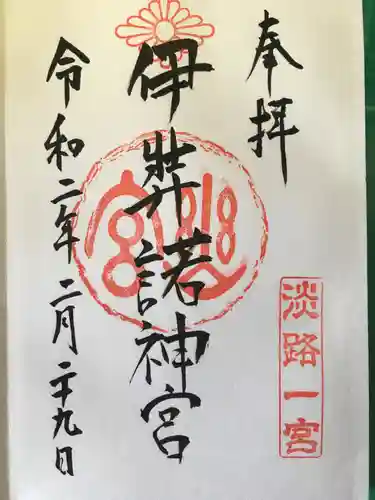 奉拝
伊弉諾神宮
令和二年二月二十九日
淡路一宮